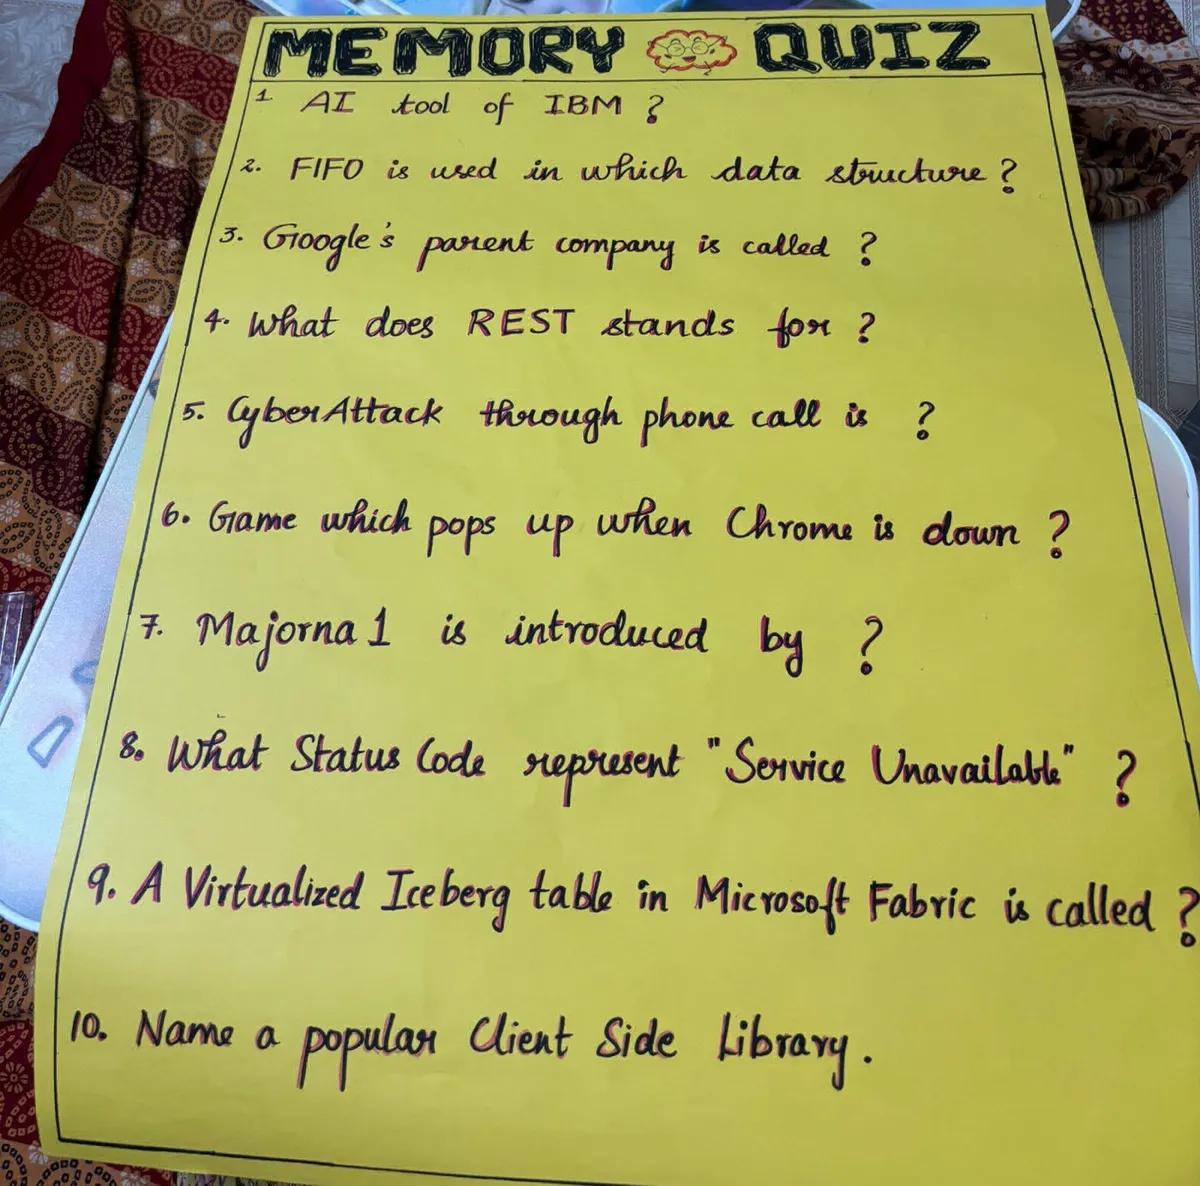 MEMORY QUIZ
1 AI tool of IBM ?
2. FIFO is used in which data structure ?
3. Google's parent company is called ?
4. What does REST stands for ?
5. CyberAttack through phone call is ?
6. Game which pops up when Chrome is down ?
7. Majorna 1 is introduced by ?
8. What Status Code represent "Service Unavailable" ?
9. A Virtualized Iceberg table in Microsoft Fabric is called ?
10. Name a popular Client Side Library.